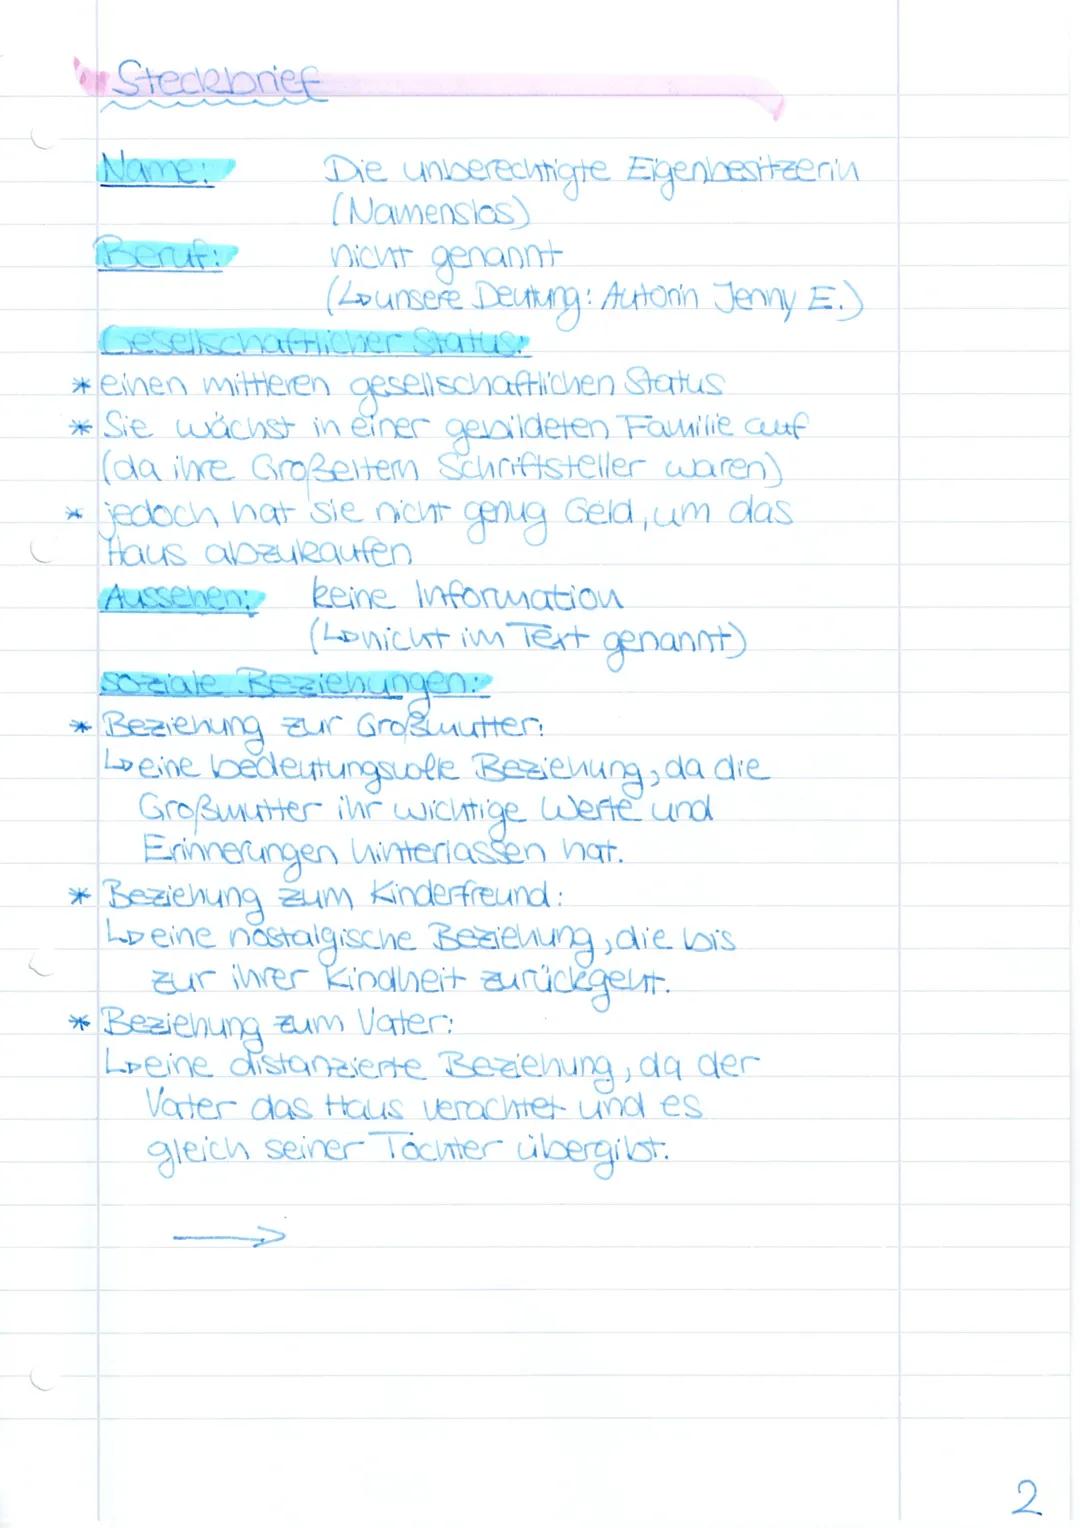 Steckbrief
Name: Die unberechtigte Eigenbesitzerin
(Namenslos)
Beruf: nicht genannt
(↳ unsere Deutung: Autorin Jenny E.)
Gesellschaftlicher Status:
* einen mittleren gesellschaftlichen Status
* Sie wächst in einer gebildeten Familie auf
(da ihre Großeltern Schriftsteller waren)
* jedoch hat sie nicht genug Geld, um das
Haus abzukaufen
Aussehen: keine Information
(↳ nicht im Text genannt)
soziale Beziehungen:
* Beziehung zur Großmutter:
↳ eine bedeutungsvolle Beziehung, da die
Großmutter ihr wichtige Werte und
Erinnerungen hinterlassen hat.
* Beziehung zum Kinderfreund:
↳ eine nostalgische Beziehung, die bis
zur ihrer Kindheit zurückgeht.
* Beziehung zum Vater:
↳ eine distanzierte Beziehung, da der
Vater das Haus verachtet und es
gleich seiner Tochter übergibt.
→
2